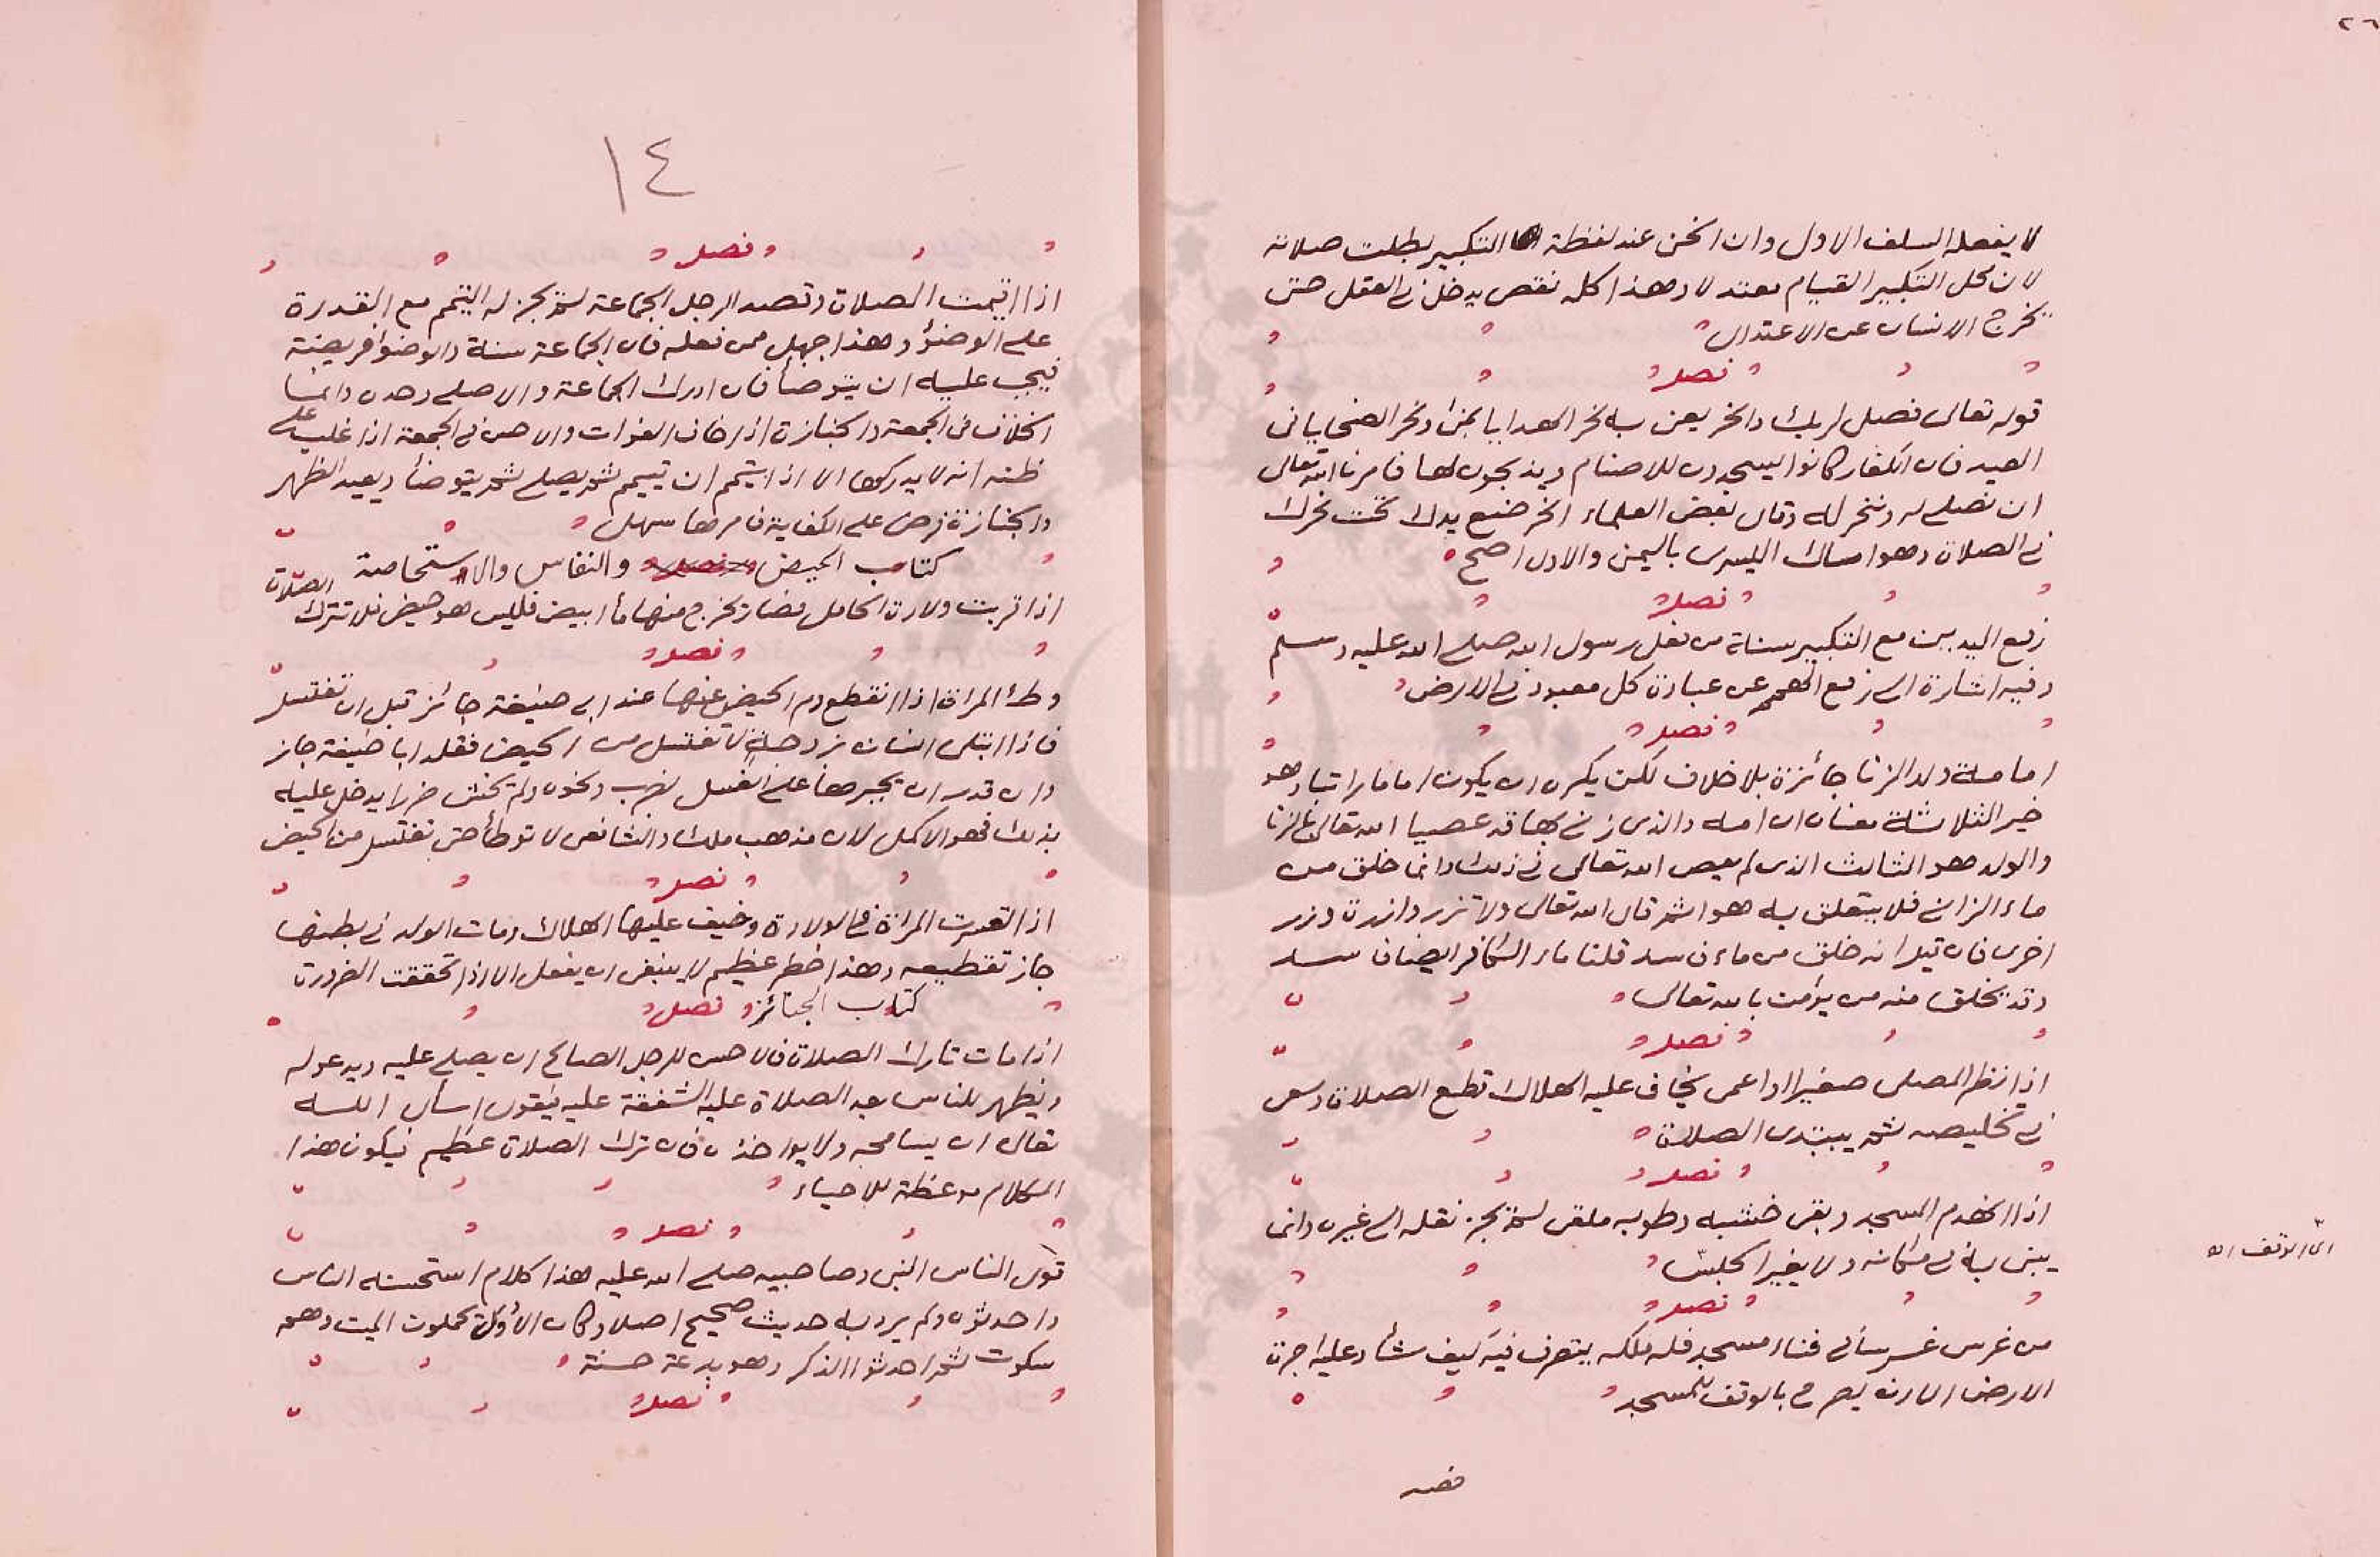 ٢٦
لا يفعله السلف الاول وان انحنى عند لفظة التكبير بطلت صلاته
لان محل التكبير القيام معتدلا وهذا كله نقص يدخل في العقل حتى
يخرج الانسان عن الاعتدال
فصل
قوله تعالى فصل لربك وانحر يعني به نحر الهدايا بمنى ونحر الضحايا في
العيد فان الكفار كانوا يسجدون للاصنام ويذبحون لها فامرنا الله تعالى
ان نصلي له وننحر له وقال بعض العلماء انحر ضع يدك تحت نحرك
في الصلاة وهو امساك اليسرى باليمنى والاول اصح
فصل
رفع اليدين مع التكبير سنة من فعل رسول الله صلى الله عليه وسلم
وفيه اشارة الى رفع الهمم عن عبادة كل معبود في الارض
فصل
امامة ولد الزنا جائزة بلا خلاف لكن يكره ان يكون اماما راتبا وهو
خير الثلاثة معناه ان امه والذي زنى بها قد عصيا الله تعالى في الزنا
والولد هو الثالث الذي لم يعص الله تعالى في ذلك وانما خلق من
ماء الزاني فلا يتعلق به هو اثم قال الله تعالى ولا تزر وازرة وزر
اخرى فان قيل انه خلق من ماء فاسد قلنا ماء الكافر ايضا فاسد
وقد يخلق منه من يؤمن بالله تعالى
فصل
اذا نظر المصلي صغيرا او اعمى يخاف عليه الهلاك قطع الصلاة وسعى
في تخليصه ثم يبتدي الصلاة
فصل
اذا انهدم المسجد وبقى خشبه وطوبه ملقى لم يجز نقله الى غيره وانما
يبنى به في مكانه ولا يغير الحبس
اي الوقف اه
فصل
من غرس غرسا في فناء مسجد فله ملكه يتصرف فيه كيف شاء وعليه اجرة
الارض الا انه يصرح بالوقف للمسجد
فصل
١٤
فصل
اذا اقيمت الصلاة وقصد الرجل الجماعة لم يجز له التيمم مع القدرة
على الوضؤ وهذا جهل ممن فعله فان الجماعة سنة والوضوا فريضة
فيجب عليه ان يتوضأ فان ادرك الجماعة والا صلى وحده وانما
الخلاف في الجمعة والجنازة اذا خاف الفوات والاحسن في الجمعة اذا غلب على
ظنه انه لا يدركها الا اذا تيمم ان تيمم ثم يصلي ثم يتوضأ ويعيد الظهر
والجنازة فرض على الكفاية فامرها سهل
كتاب الحيض والنفاس والاستحاضة
اذا قربت ولادة الحامل فصار يخرج منها ماأ ابيض فليس هو حيض فلا تترك الصلاة
فصل
وطئ المراة اذا انقطع دم الحيض عنها عند ابي حنيفة جائز قبل ان تغتسل
فاذا ابتلى انسان بزوجة لا تغتسل من الحيض فقلد ابا حنيفة جاز
وان قدر ان يجبرها على الغسل بضرب ونحوه ولم يخش ضررا يدخل عليه
بذلك فهو الاكمل لان مذهب ملك والشافعي لا توطأ حتى تغتسل من الحيض
فصل
اذا تعسرت المراة في الولادة وخيف عليها الهلاك ومات الولد في بطنها
جاز تقطيعه وهذا خطر عظيم لا ينبغي ان يفعل الا اذا تحققت الضرورة
كتاب الجنائز فصل
اذا مات تارك الصلاة فالاحسن للرجل الصالح ان يصلي عليه ويدعو له
ويظهر للناس بعد الصلاة عليه الشفقة عليه فيقول اسأل الله
تعالى ان يسامحه ولا يواخذه فان ترك الصلاة عظيم فيكون هذا
الكلام موعظة للاحياء
فصل
قول الناس النبي وصاحبيه صلى الله عليه هذا كلام استحسنه الناس
واحدثوه ولم يرد به حديث صحيح اصلا وكان الأولون يحملون الميت وهم
سكوت ثم احدثوا الذكر وهو بدعة حسنة
فصل